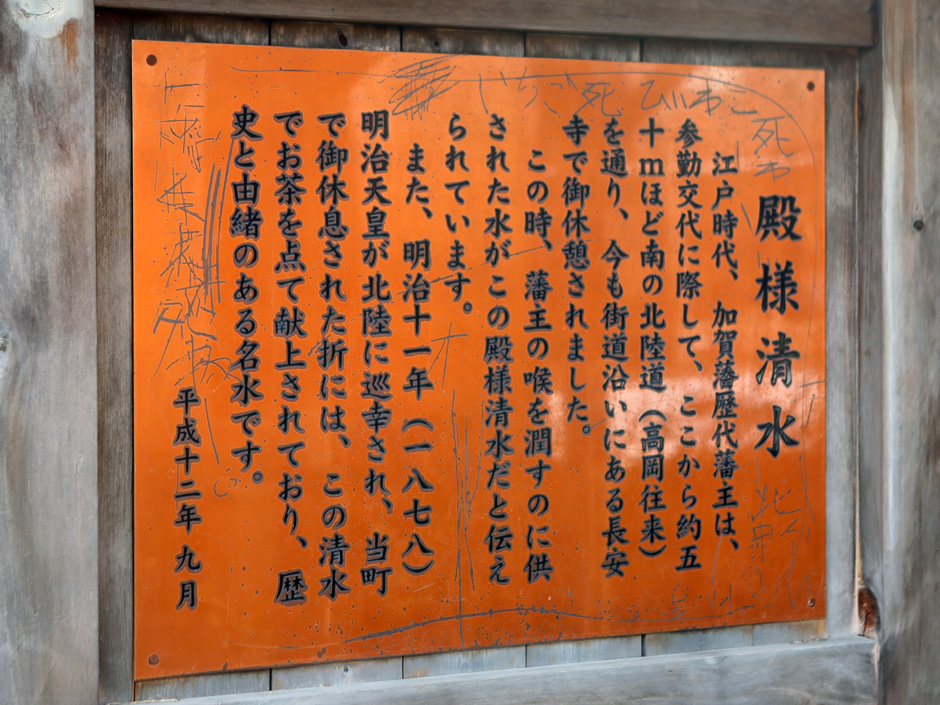 殿様清水
江戸時代、加賀藩歴代藩主は、
参勤交代に際して、ここから約五
十mほど南の北陸道（高岡往来）
を通り、今も街道沿いにある長安
寺で御休憩されました。
この時、藩主の喉を潤すのに供
された水がこの殿様清水だと伝え
られています。
また、明治十一年（一八七八）
明治天皇が北陸に巡幸され、当町
で御休息された折には、この清水
でお茶を点て献上されており、歴
史と由緒のある名水です。
平成十二年九月
いちご死
死